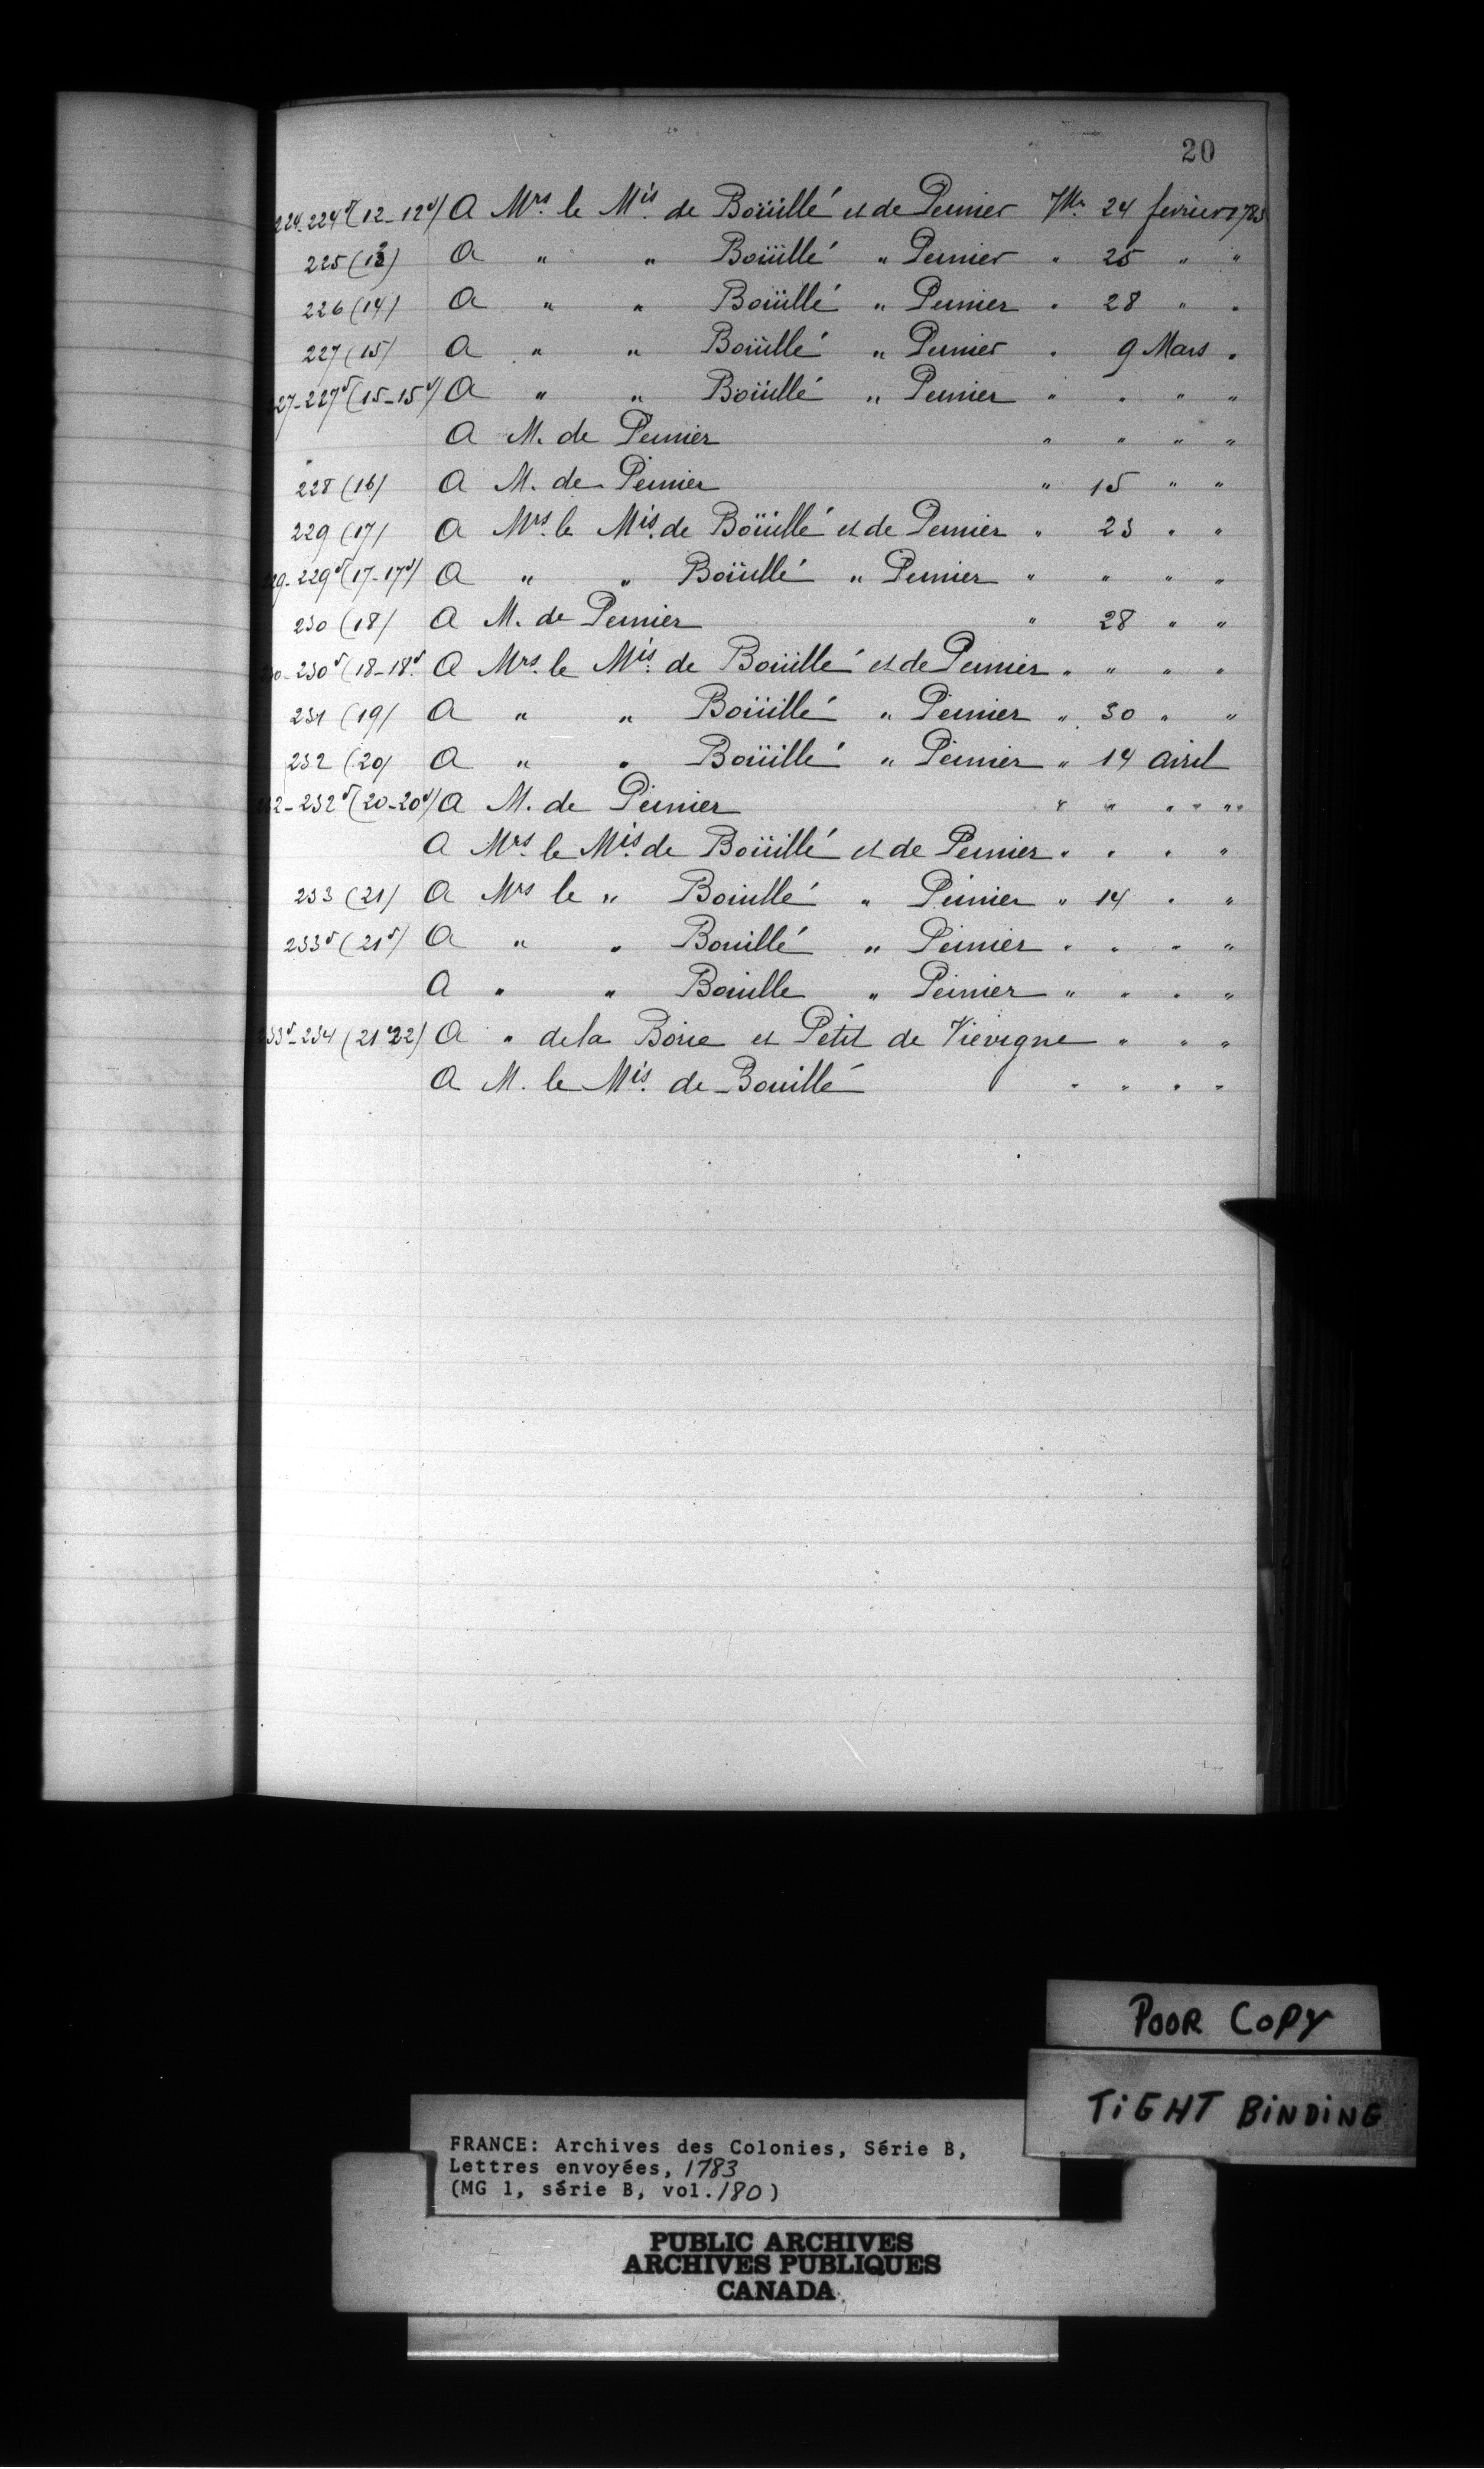 20
224-224v (12-12v) A Mrs. le Mis. de Boüillé et de Peinier Vlles 24 fevrier 1783
225 (13) A " " Boüillé " Peinier " 25 " "
226 (14) A " " Boüillé " Peinier " 28 " "
227 (15) A " " Boüillé " Peinier " 9 Mars "
227-227v (15-15v) A " " Boüillé " Peinier " " " "
A M. de Peinier " " " "
228 (16) A M. de Peinier " 15 " "
229 (17) A Mrs. le Mis. de Boüillé et de Peinier " 23 " "
229-229v (17-17v) A " " Boüillé " Peinier " " " "
230 (18) A M. de Peinier " 28 " "
230-230v (18-18v A Mrs. le Mis. de Boüillé et de Peinier " " " "
231 (19) A " " Boüillé " Peinier " 30 " "
232 (20) A " " Boüillé " Peinier " 14 avril
232-232v (20-20v) A M. de Peinier " " " "
A Mrs. le Mis. de Boüillé et de Peinier " " " "
233 (21) A Mrs le " Bouillé " Peinier " 14 " "
233v (21v) A " " Bouillé " Peinier " " " "
A " " Bouille " Peinier " " " "
233v-234 (21v22) A " de la Borie et Petit de Vievigne " " "
A M. le Mis. de Bouillé " " " "
POOR COPY
TIGHT BINDING
FRANCE: Archives des Colonies, Série B,
Lettres envoyées, 1783
(MG 1, série B, vol. 180)
PUBLIC ARCHIVES
ARCHIVES PUBLIQUES
CANADA